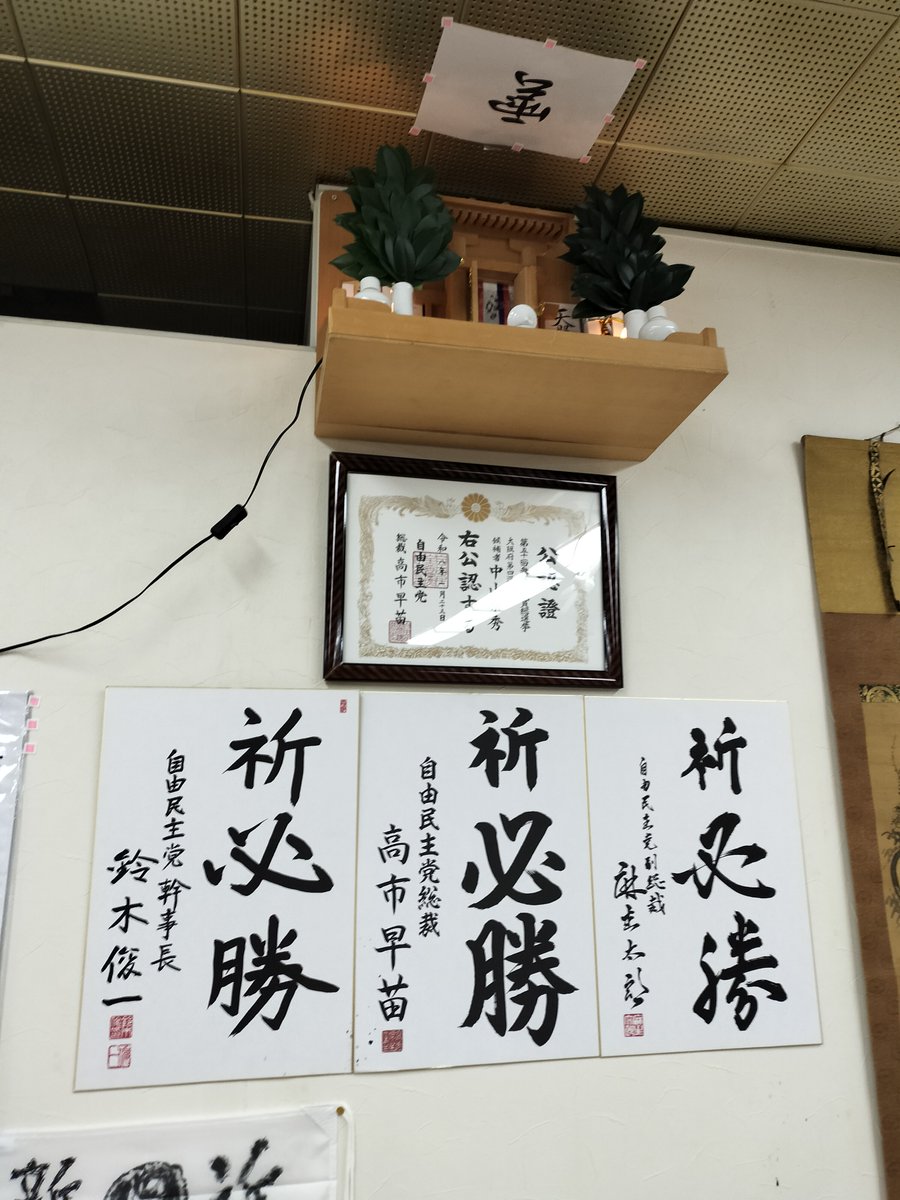 雲
天照
公認證
第五十
大阪府第四
候補者 中山 秀
右公認する
令和八年一月二十三日
自由民主党
総裁 高市早苗
祈必勝
自由民主党副総裁
麻生太郎
祈必勝
自由民主党総裁
高市早苗
祈必勝
自由民主党 幹事長
鈴木俊一